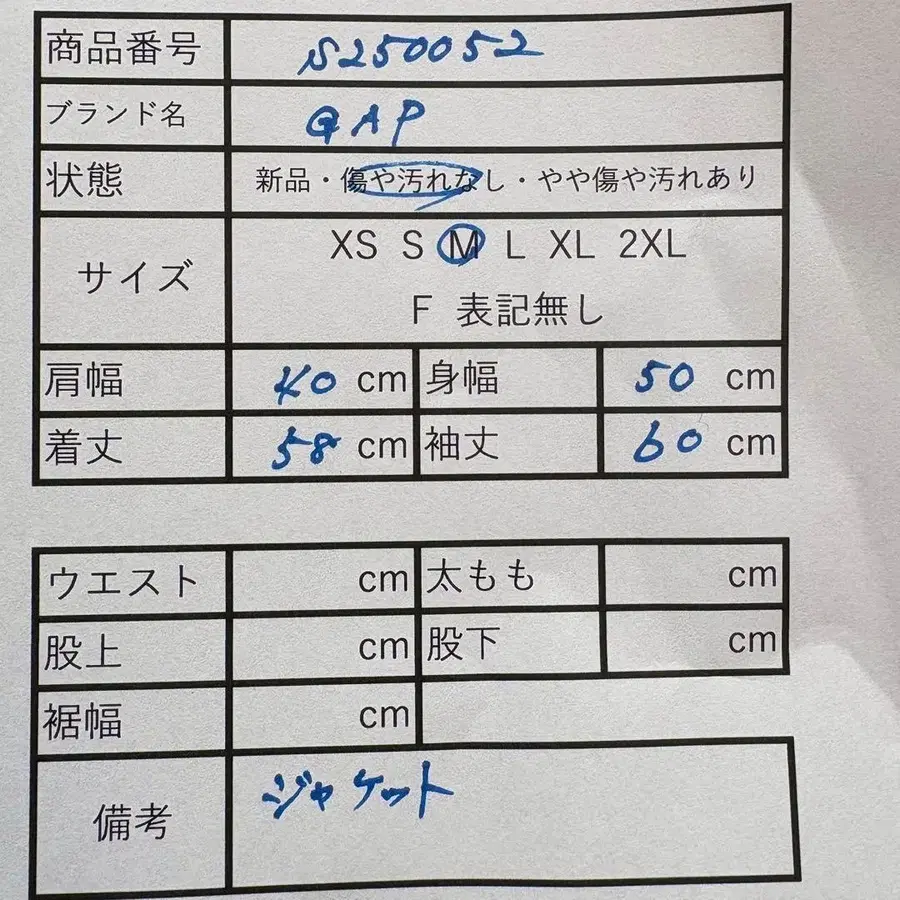 商品番号 S250052
ブランド名 GAP
状態 新品・傷や汚れなし・やや傷や汚れあり
サイズ XS S M L XL 2XL
F 表記無し
肩幅 40 cm 身幅 50 cm
着丈 58 cm 袖丈 60 cm
ウエスト cm 太もも cm
股上 cm 股下 cm
裾幅 cm
備考 ジャケット